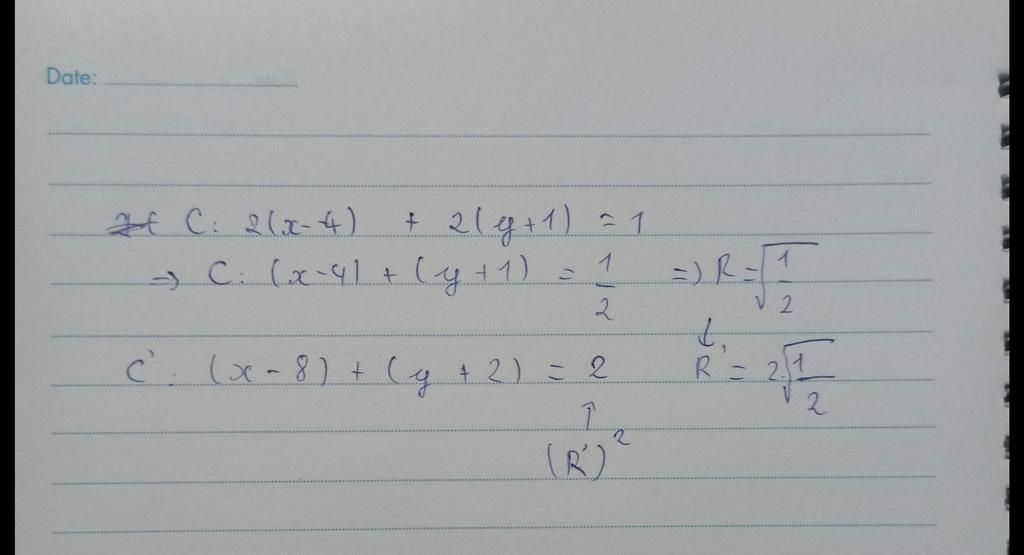 Date:
C: 2(x-4) + 2(y+1) = 1
=> C: (x-4) + (y+1) = 1/2 => R = √1/2
↓
C': (x-8) + (y+2) = 2 R' = 2√1/2
↑
(R')²